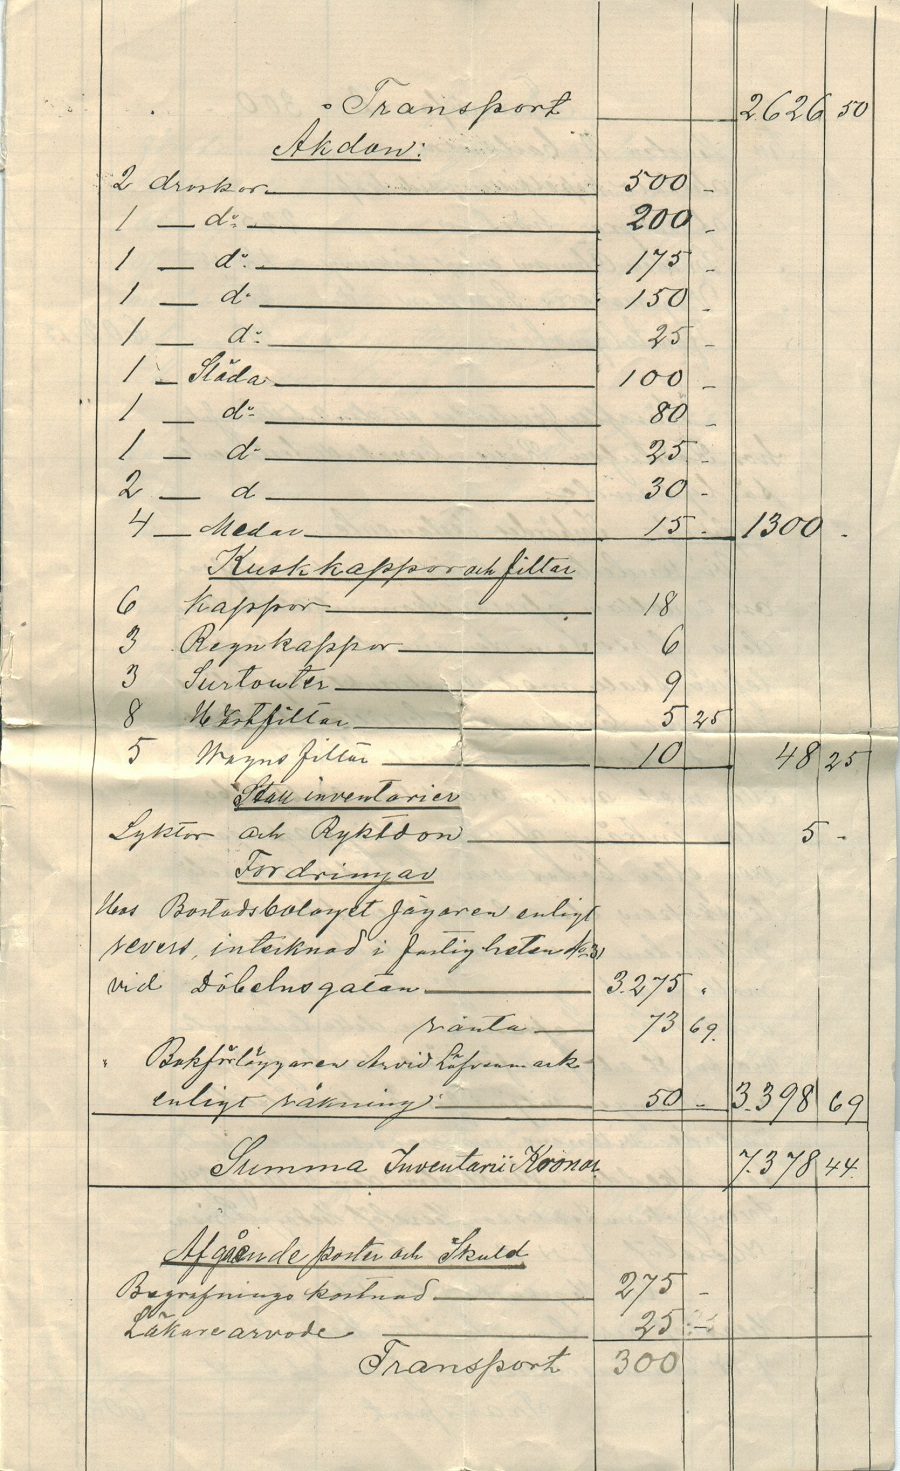 Transport 2626 50
Åkdon:
2 droskor 500 -
1 — do 200 -
1 — do 175 -
1 — do 150 -
1 — do 25 -
1 — Släda 100 -
1 — do 80 -
1 — do 25 -
2 — d 30 -
4 — Medar 15 - 1300 -
Kuskkappor och filtar
6 Kappor 18
3 Regnkappor 6
3 Surtouter 9
8 Hästfiltar 5 25
5 Wagnsfiltar 10 48 25
Stall inventarier
Lyktor och Ryktdon 5 -
Fordringar
Hos Bostadsbolaget Jägaren enligt
revers, intecknad i fastigheten No 3
vid Döbelnsgatan 3.275 "
ränta 73 69.
" Bokförläggaren Arvid Löfvenmark
enligt räkning 50 - 3.398 69
Summa Inventarii Kronor 7.378 44.
Afgående poster och Skuld
Begrafnings kostnad 275 -
Läkarearvode 25 -
Transport 300